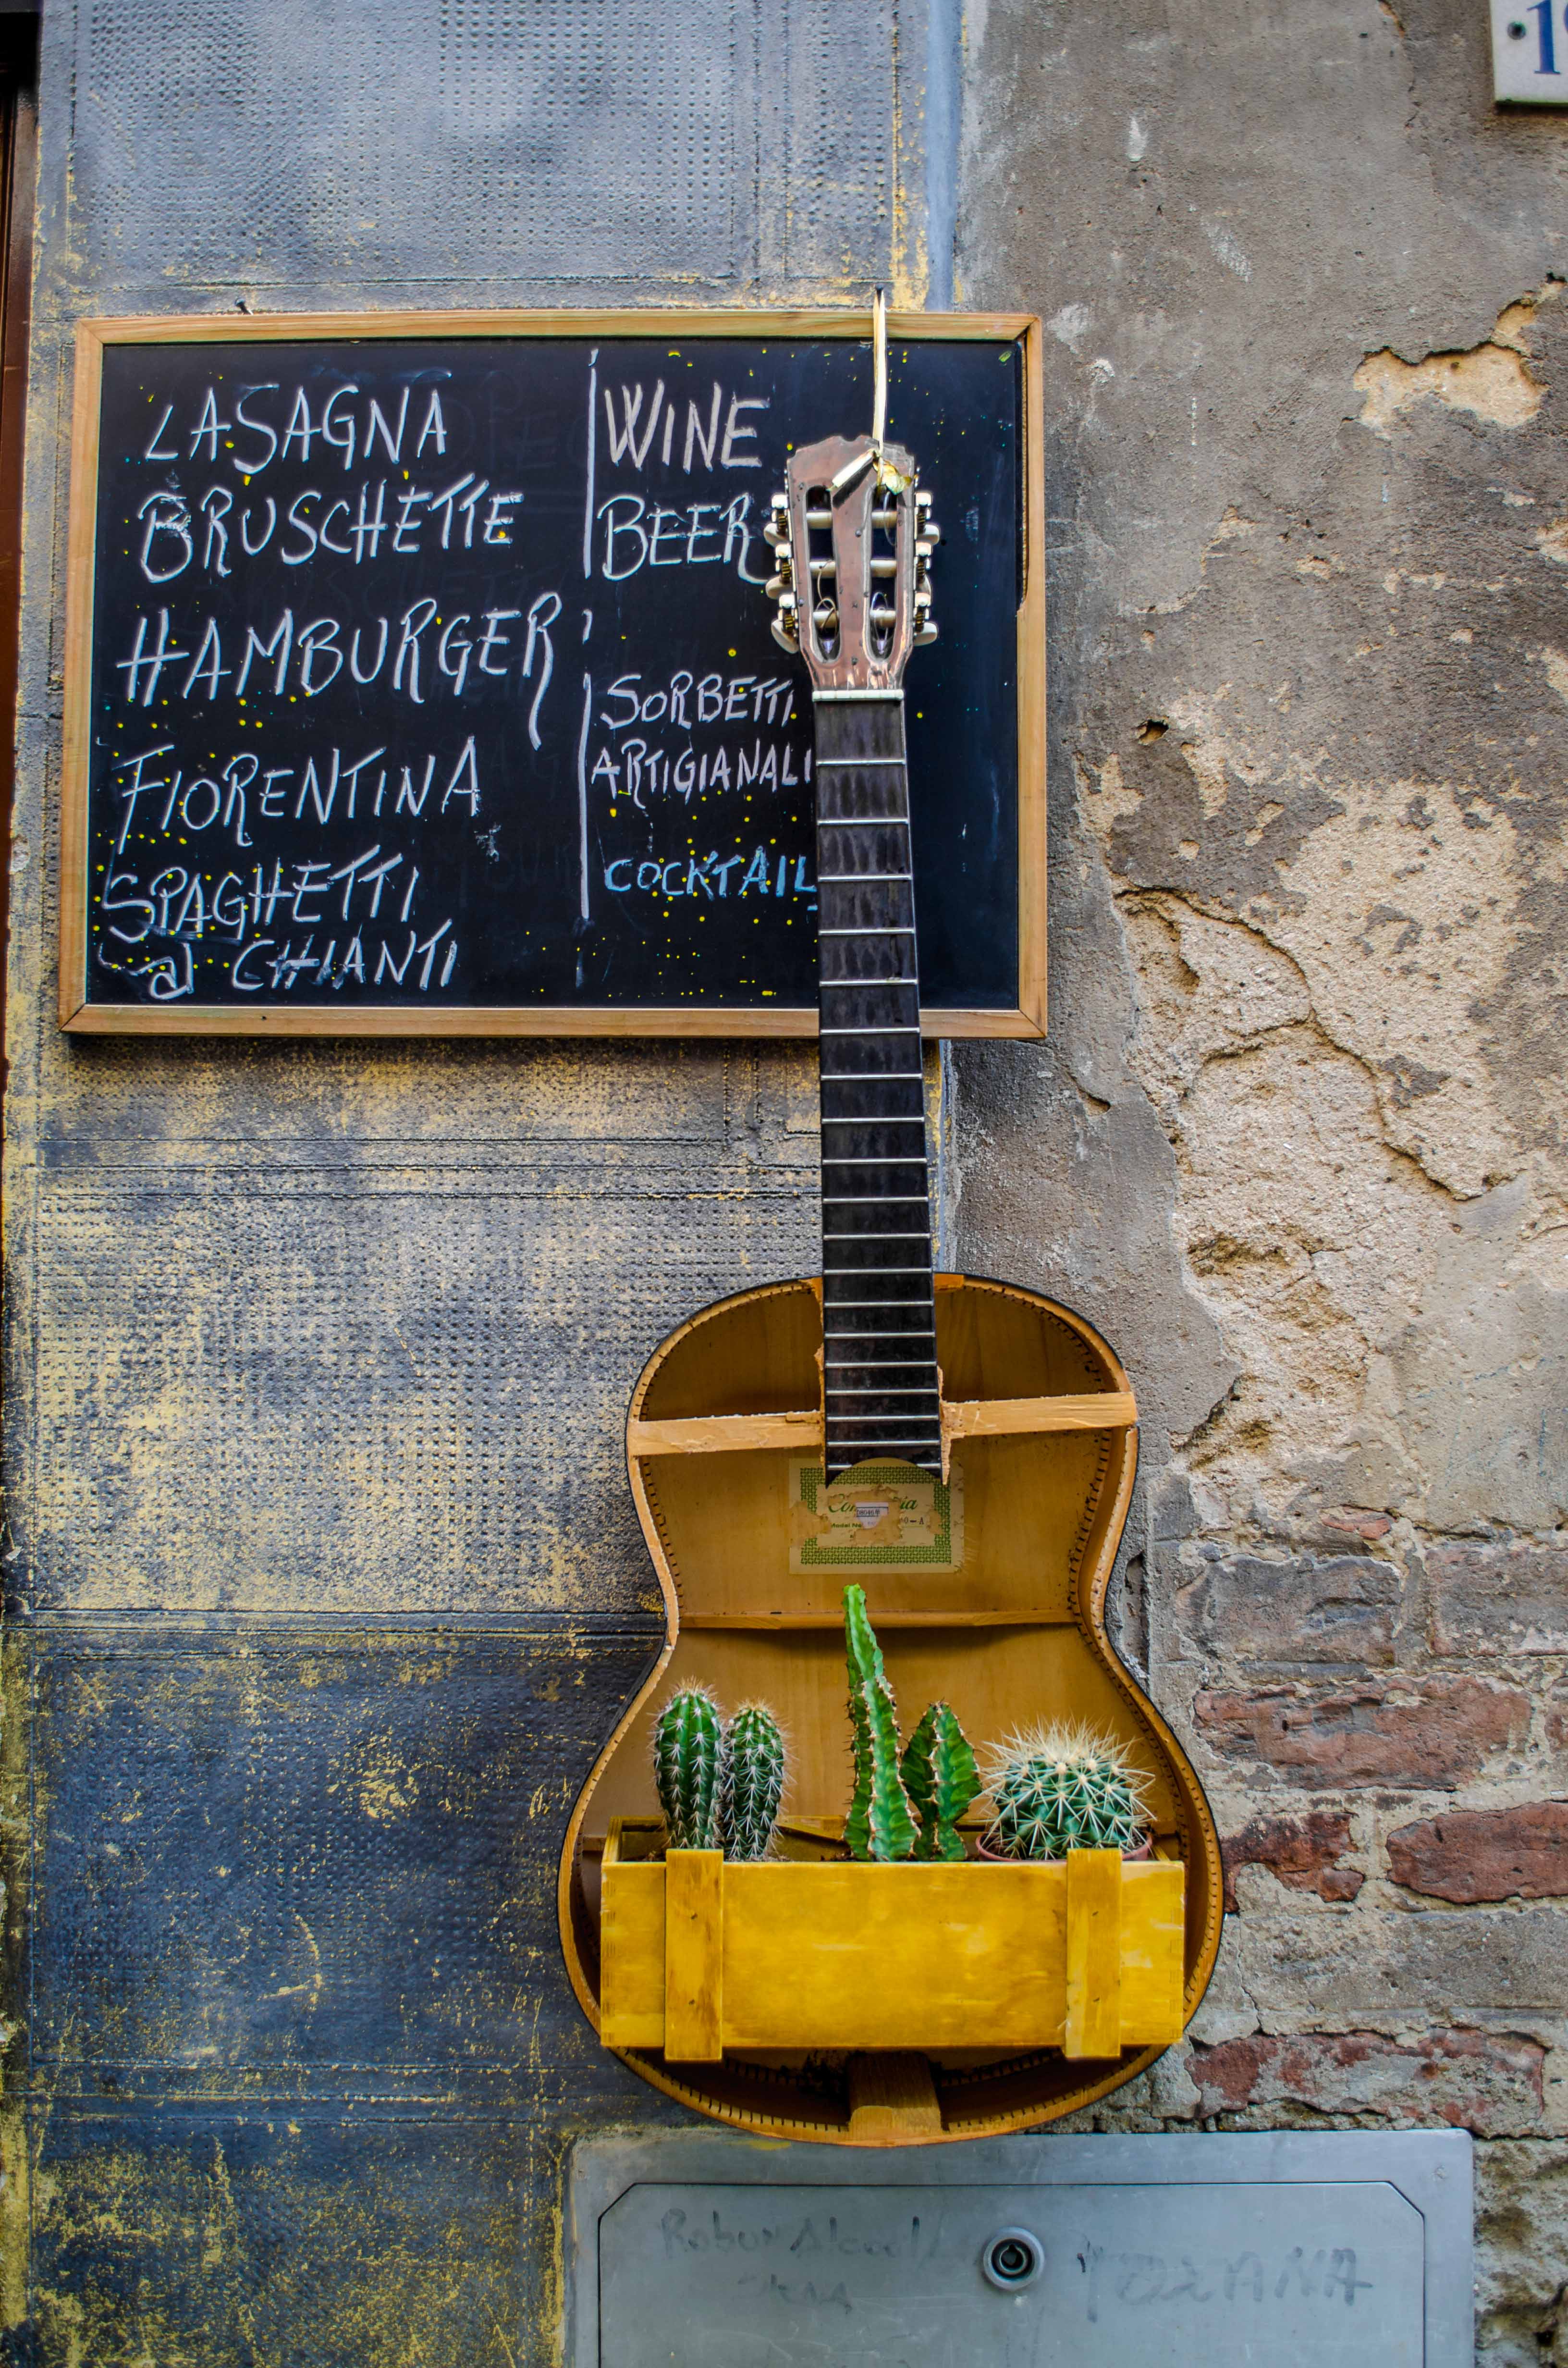 LASAGNA
BRUSCHETTE
HAMBURGER
FIORENTINA
SPAGHETTI
al CHIANTI
WINE
BEER
SORBETTI
ARTIGIANALI
COCKTAIL
Model No.